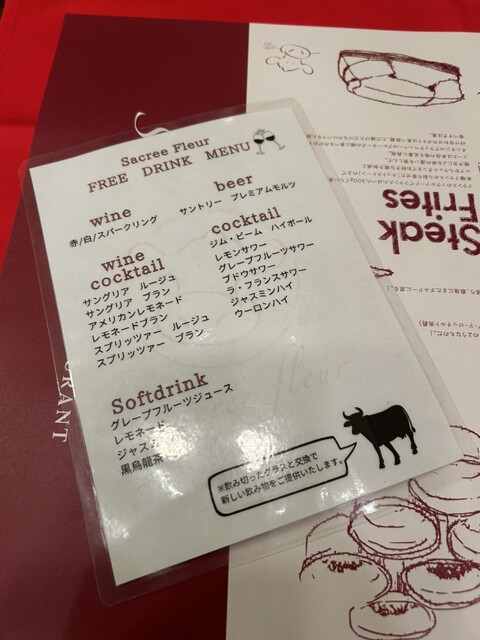 Sacree Fleur
FREE DRINK MENU
wine
赤/白/スパークリング
beer
サントリー プレミアムモルツ
wine
cocktail
サングリア ルージュ
サングリア ブラン
アメリカンレモネード
レモネードブラン
スプリッツァー ルージュ
スプリッツァー ブラン
cocktail
ジム・ビーム ハイボール
レモンサワー
グレープフルーツサワー
ブドウサワー
ラ・フランスサワー
ジャスミンハイ
ウーロンハイ
Softdrink
グレープフルーツジュース
レモネード
ジャス
黒烏龍茶
※飲み切ったグラスと交換で
新しい飲み物をご提供いたします。
Steak
Frites